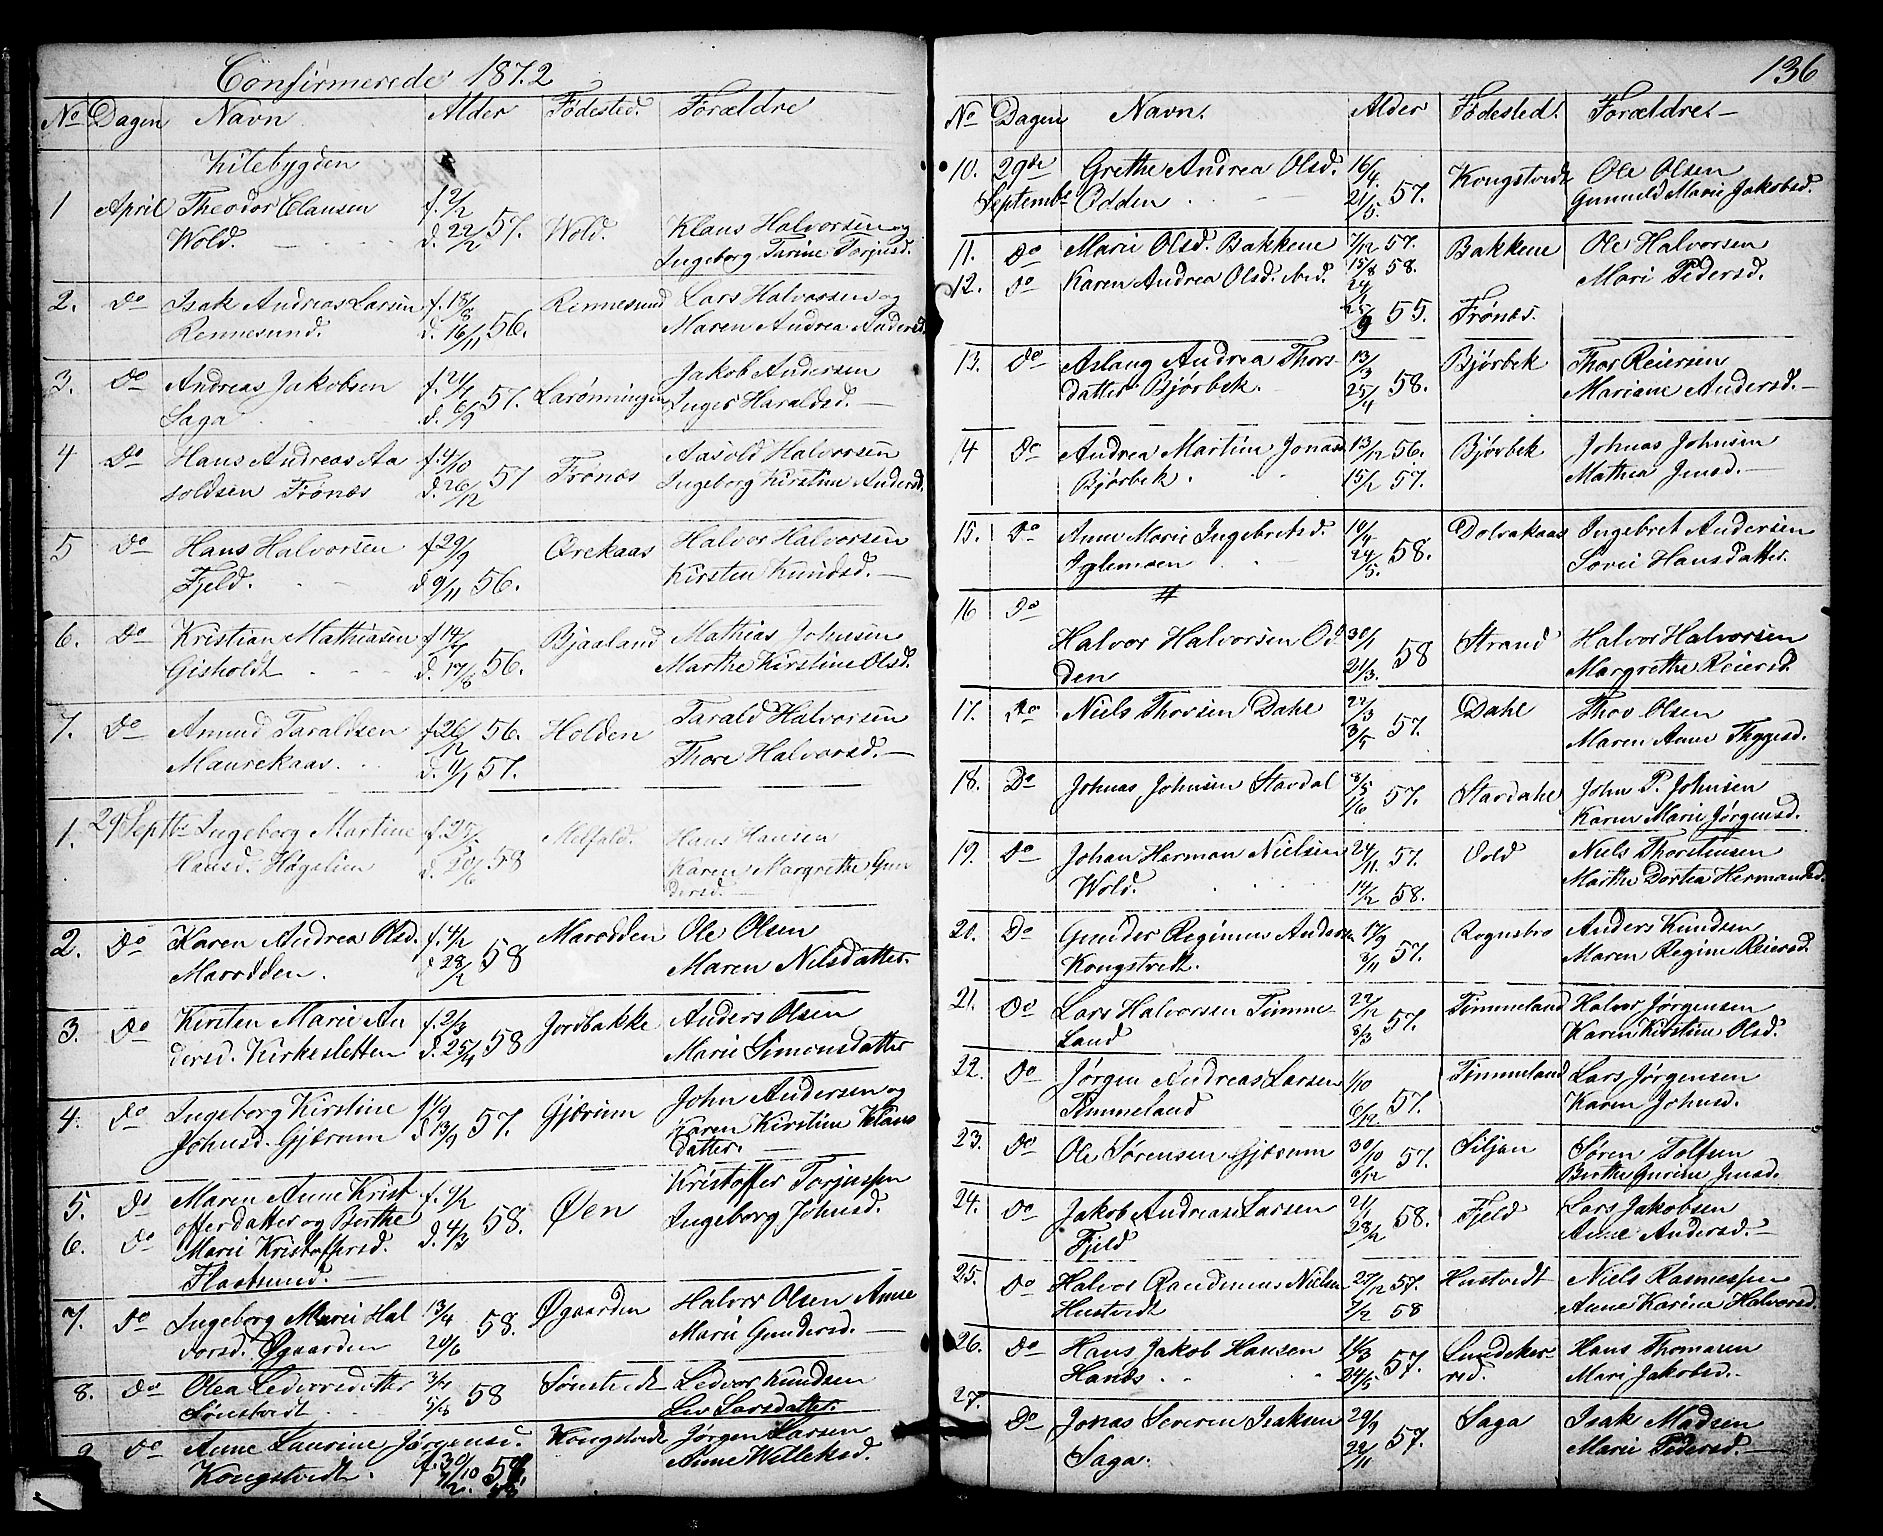 Confirmerede 1872
No Dagen Navn Alder Fødested. Forældre
Kilebygden
1 April Theodor Clausen f. 2/2
Wold. d. 22/2 57. Wold. Klaus Halvorsen og
Ingeborg Turine Torjusd.
2. Do Isak Andreas Larsen f. 18/8 Rennesund Lars Halvorsen og
Rennesund. d. 16/11 56. Maren Andrea Andersd.
3. Do Andreas Jakobsen f. 21/7 57. Larønningen Jakob Andersen
Saga d. 6/9 Inger Haraldsd. —
4 Do Hans Andreas Aa f. 4/10 57 Frønæs Aasold Halvorsen
soldsen Frønæs d. 26/12 Ingeborg Kirstine Andersd.
5 Do Hans Halvorsen f. 29/9 Ørekaas Halvor Halvorsen
Fjeld. d. 9/11 56. Kirsten Knudsd. —
6. Do Kristian Mathiasen f. 14/7 Bjaaland Mathias Johnsen
Gisholdt d. 17/8 56. Marthe Kirstine Olsd.
7. Do Amund Taraldsen f. 26/12 56. Holden Tarald Halvorsen
Maurekaas. d. 1/1 57. Thore Halvorsd. —
1. 29 Septbr Ingeborg Martine f. 25/ Melfald. Hans Hansen
Hansd. Høgelien d. 20/6 58 Karen Margrethe Gun
dersd. —
2. Do Karen Andrea Olsd. f. 4/2 58 Marodden Ole Olsen
Marodden. d. 28/2 Maren Nilsdatter
3. Do Kirsten Marie An f. 2/3 Jordbakke Anders Olsen
dersd. Kirkesletten d. 25/4 58 Marie Simonsdatter
4. Do Ingeborg Kirstine f. 1/9 57. Gjærum John Andersen og
Johnsd. Gjærum d. 13/9 Karen Kirstine Klaus
datter. —
5. Do Maren Anne Krist f. 9/2 58. Øen Kristoffer Torjussen
offerdatter og Berthe Ingeborg Johnsd.
6. Do Marie Kristoffersd. d. 4/3
Flaatsund. —
7. Do Ingeborg Marie Hal 13/4 58. Øgaarden Halvor Olsen Anne
vorsd. Øgaarden 20/6 Marie Gundersd. —
8. Do Olea Ledvorsdatter 3/4 58 Sønstvedt Ledvor Knudsen
Sønstvedt 5/5 Liv Larsdatter
9 Do Anne Laurine Jørgensd. Kongstvedt Jørgen Larsen
Kongstvedt. f. 30/10 Anne Willeksd.
136
No Dagen Navn. Alder Fødested. Forældre —
10. 29de Grethe Andrea Olsd. 16/4. Kongstvedt Ole Olsen
Septembr Odden 21/5. 57. Gunnild Marie Jakobsd.
11. Do Marie Olsd. Bakkene 7/12 57. Bakkene Ole Halvorsen
15/8 58. Mari Pedersd.
12. Do Karen Andrea Olsd. ibid. 24/7
25/9 55. Frønæs.
13. Do Aslaug Andrea Thors- 13/3 Bjørbek Thor Reiersen
datter Bjørbek. 25/4 58. Mariane Andersd. —
14 Do Andrea Martine Jonasd 13/12 56. Bjørbek Johnas Johnsen
Bjørbek 15/2 57. Mathea Jensd. —
15. Do Anne Marie Ingebretsd. 10/4 58. Dolvakaas Ingebret Andersen
Iglemoen 24/5. Sørei Hansdatter.
16 Do #
Halvor Halvorsen Od 30/1 58 Strand Halvor Halvorsen
den 21/3. Margrethe Reiersd.
17. Do Niels Thorsen Dahl 22/3 57. Dahl Thor Olsen
3/5 Maren Anne Thygesd.
18. Do Johnas Johnsen Stavdal 18/5 57. Stavdahl John P. Johnsen
1/6 Karen Marie Jørgensd.
19. Do Johan Herman Nielsen 24/11. 57. Vold Niels Thorstensen
Wold. 14/2 58. Marthe Dortea Hermandsd.
20. Do Gunder Reginus Andersen 17/9 Rognsbro Anders Knudsen
Kongstvedt. 8/11 57. Maren Regine Reiersd.
21. Do Lars Halvorsen Timme- 22/12 57. Timmeland Halvor Jørgensen
Land 8/3 Karen Kirstine Olsd.
22. Do Jørgen Andreas Larsen 1/10 Timmeland Lars Jørgensen
Timmeland 6/12 57. Karen Johnsd.
23. Do Ole Sørensen Gjærum 30/10 57. Siljan Søren Tolfsen
6/12 Berthe Gurine Jensd.
24. Do Jakob Andreas Larsen 21/1 58. Fjeld Lars Jakobsen
Fjeld 28/2 Anne Andersd. —
25. Do Halvor Randinius Nielsen 27/12 57. Hustvedt Niels Rasmussen
Hustvedt 7/2 58 Anne Karine Halvorsd.
26. Do Hans Jakob Hansen 14/3 57. Lundeker- Hans Thomasen
Haraas 24/5 red. Mari Jakobsd. —
27. Do Jonas Severin Isaksen 29/9 57. Saga Isak Madsen
Saga. 22/11 Marie Pedersd. —